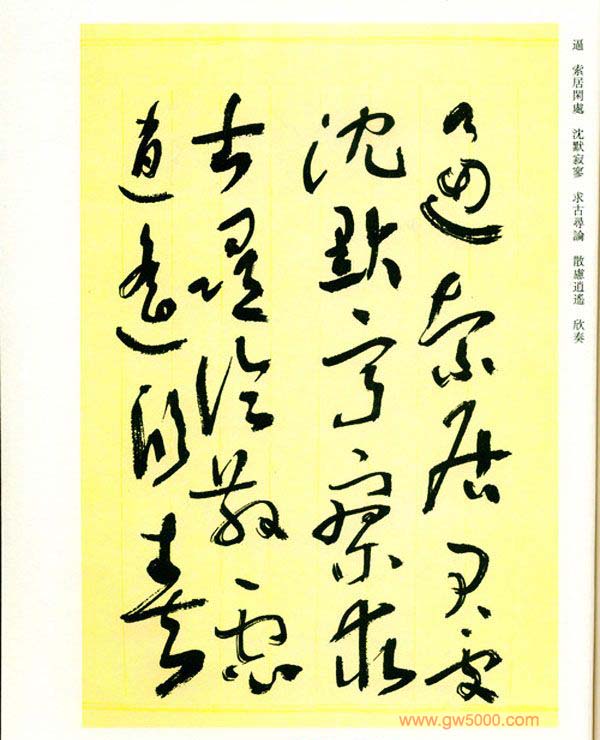 逼 索居閑處 沈默寂寥 求古尋論 散慮逍遙 欣奏
逼索居閑處
沈默寂寥求
古尋論散慮
逍遙欣奏
www.gw5000.com